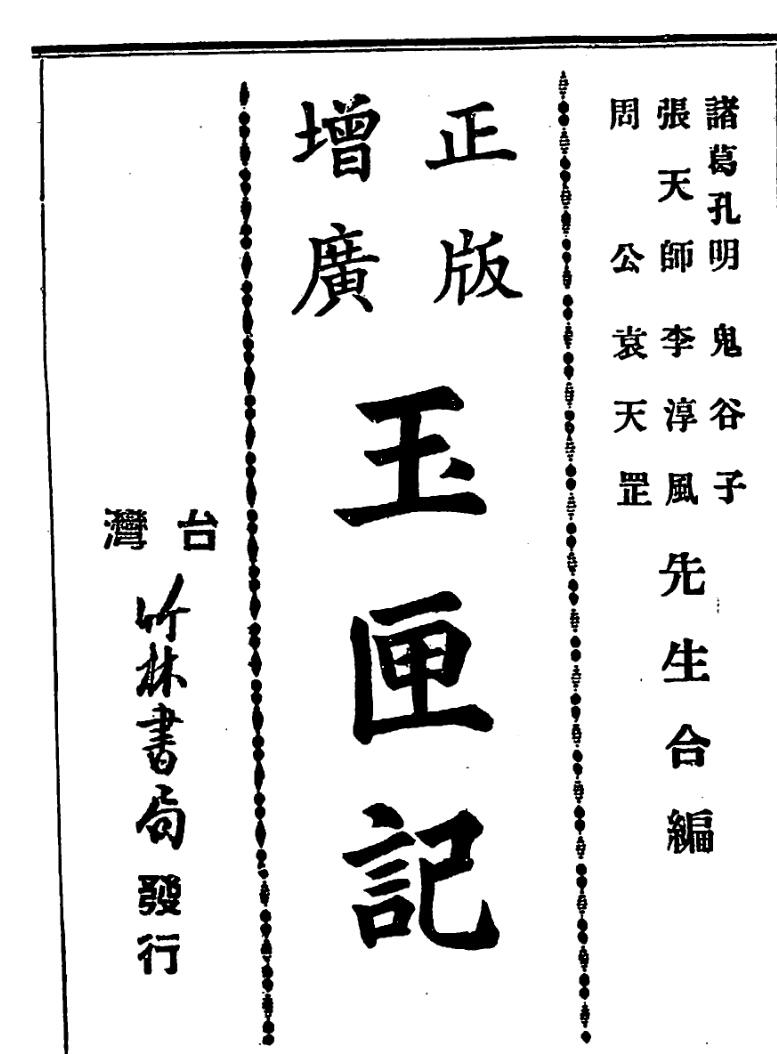 諸葛孔明 鬼谷子
張天師 李淳風
周公 袁天罡
先生合編
正版
增廣
玉匣記
台灣
竹林書局
發行